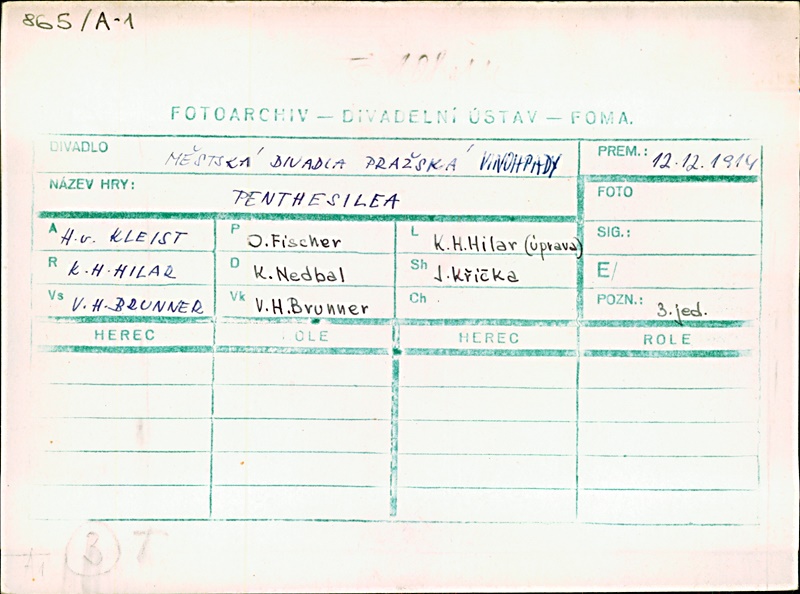 865/A-1
FOTOARCHIV — DIVADELNÍ ÚSTAV — FOMA.
DIVADLO MĚSTSKÁ DIVADLA PRAŽSKÁ VINOHRADY PREM.: 12.12.1914
NÁZEV HRY: PENTHESILEA FOTO
A H.v. KLEIST P O.Fischer L K.H.Hilar (úprava) SIG.:
R K.H.HILAR D K.Nedbal Sh J.Křička E/
Vs V.H.BRUNNER Vk V.H.Brunner Ch POZN.: 3.jed.
HEREC ROLE HEREC ROLE
3 T